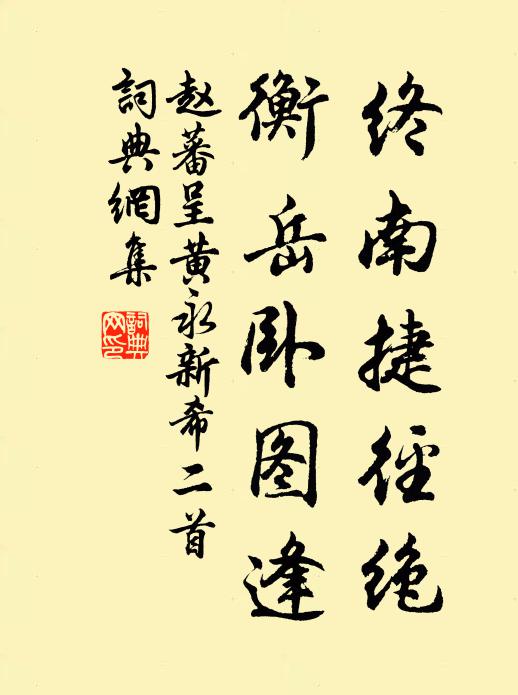 终南捷径绝
衡岳卧图逢
赵蕃呈黄永新希二首
詞典網集
詞典
网印